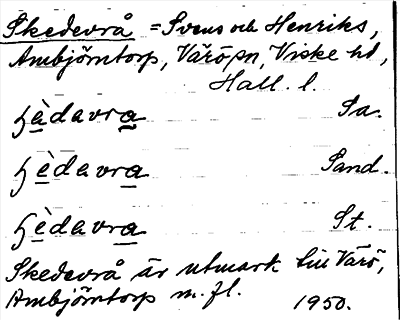 Skedevrå = Svens och Henriks,
Ambjörntorp, Värö sn, Viske hd,
Hall. l.
ɧèdavra Sa.
ɧèdavra Sand.
ɧèdavra St.
Skedevrå är utmark till Värö,
Ambjörntorp m.fl. 1950.